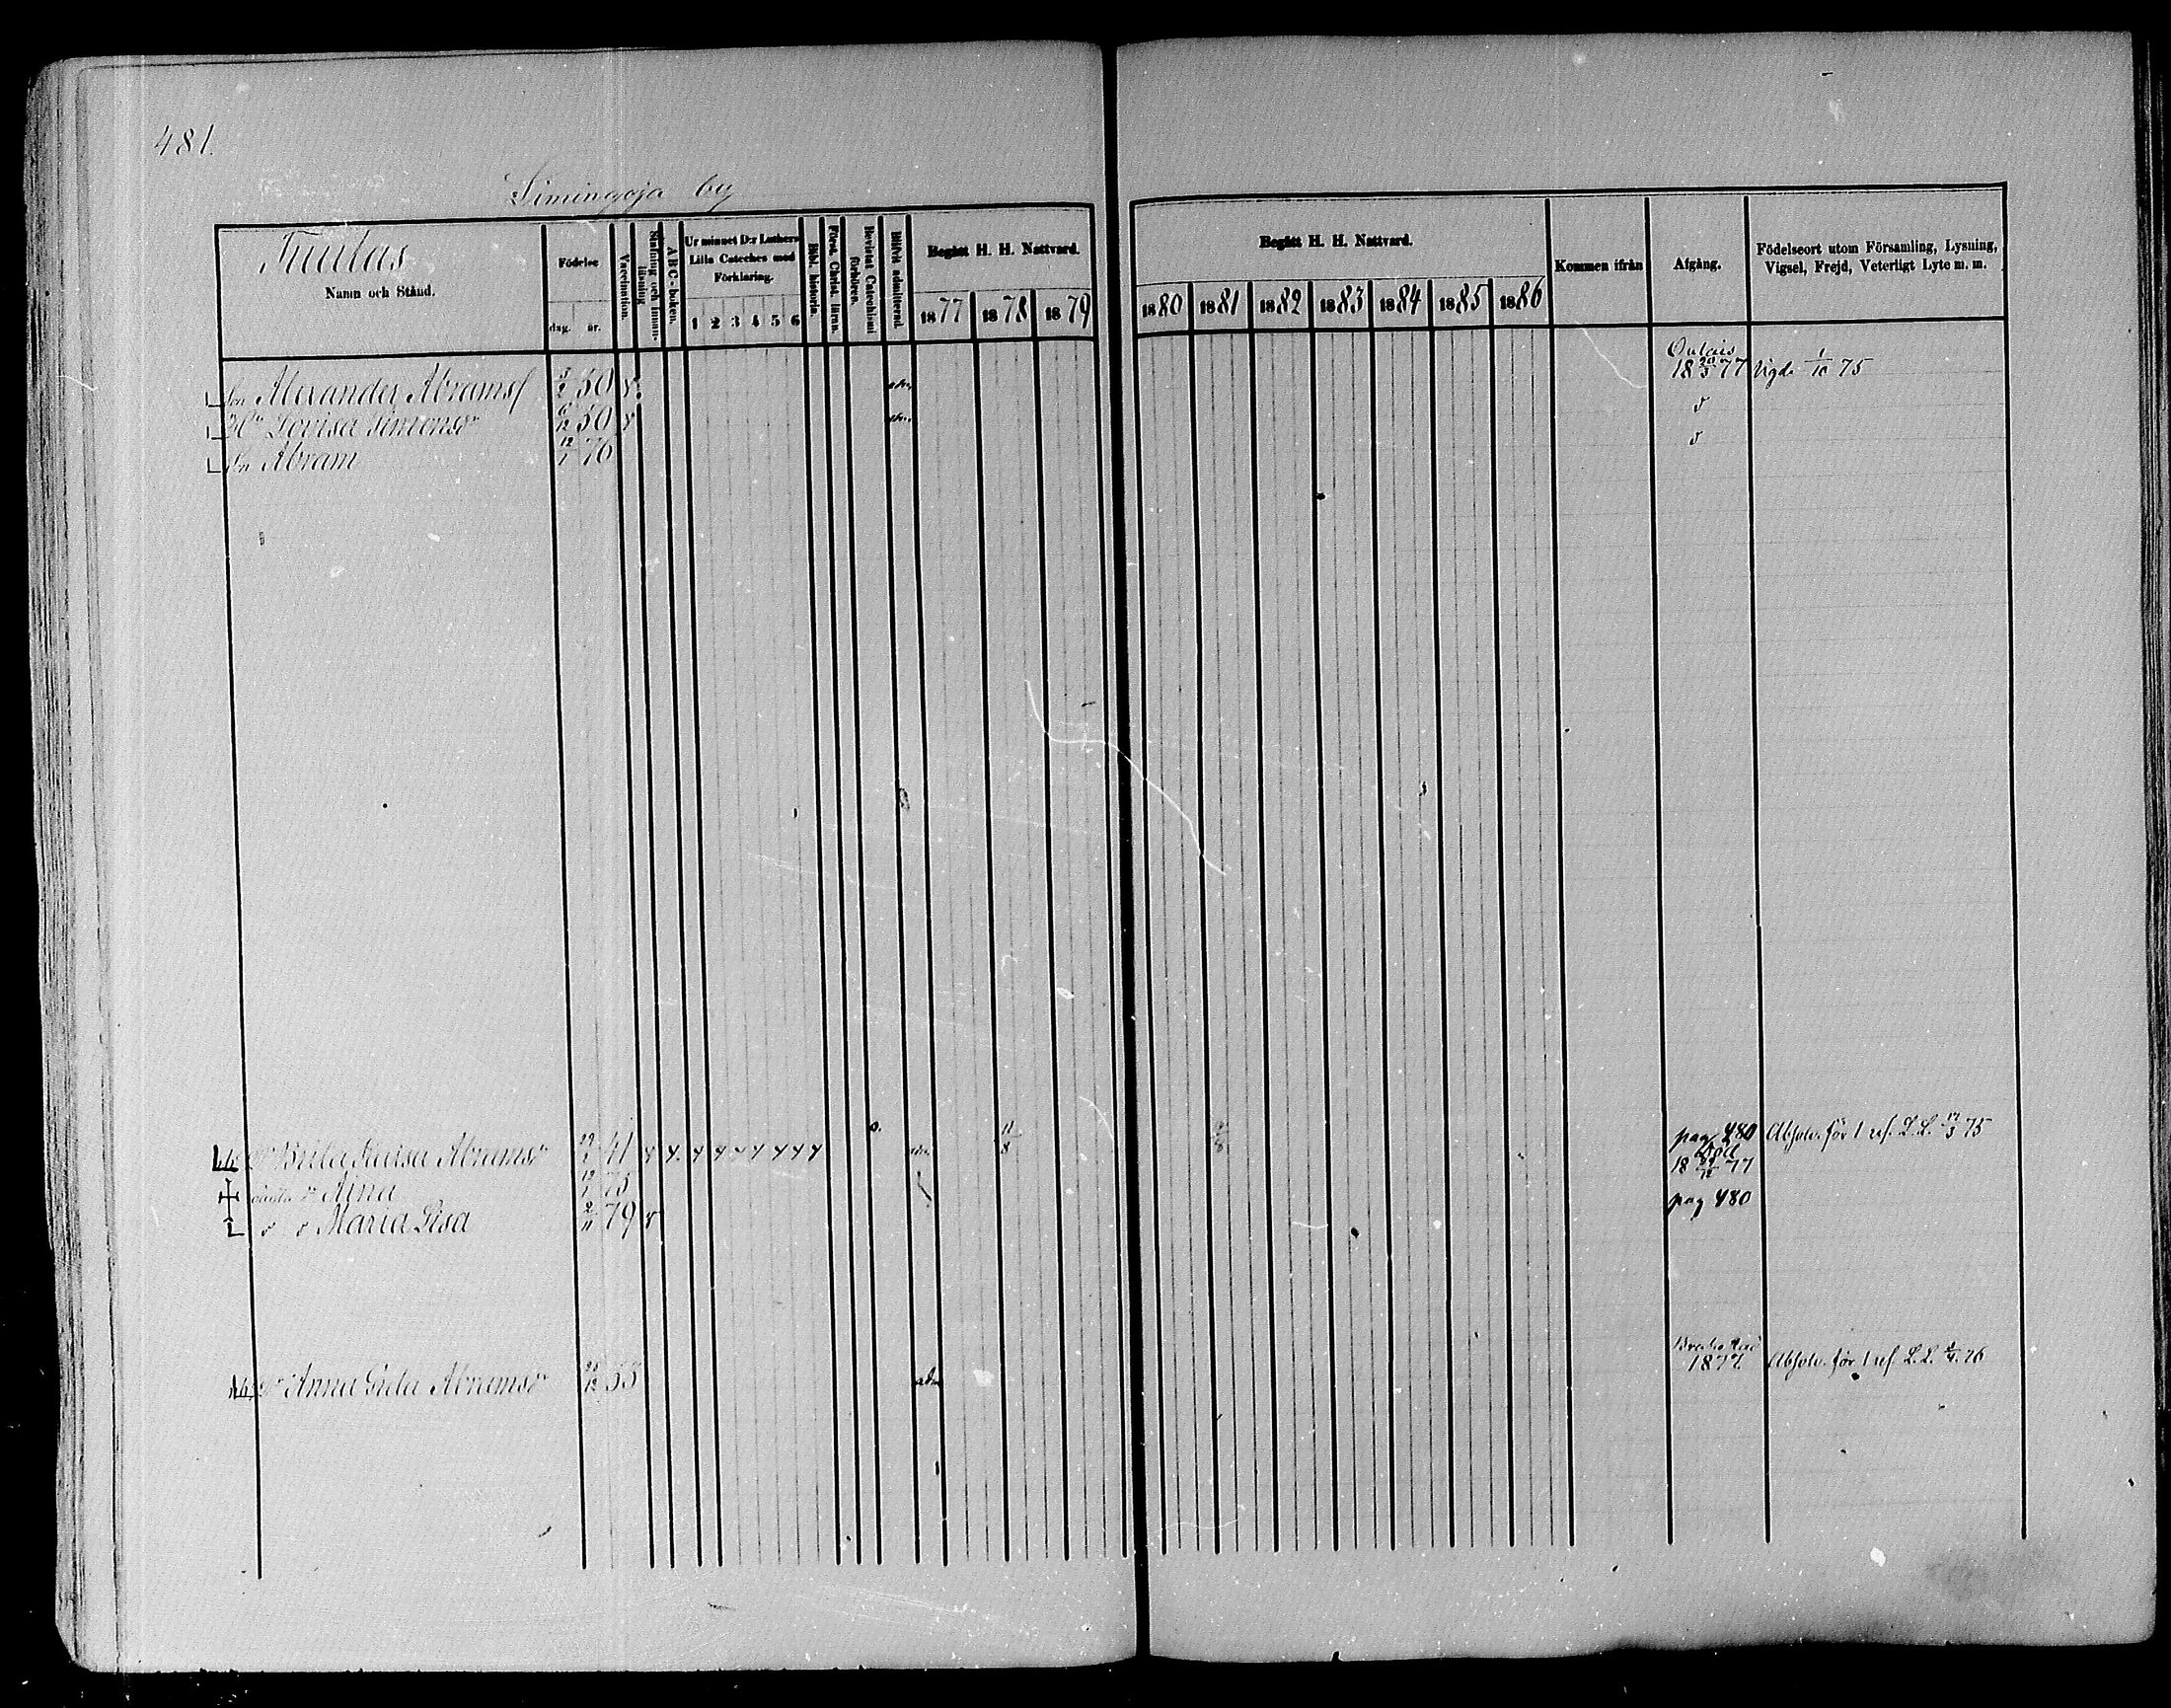 481.
by
Namn och Stånd.
Födelse
dag. år.
Vaccination.
Stafning och Innanläsning
ABC-boken.
Ur minnet D:r Luthers
Lilla Cateches med
Förklaring.
1 2 3 4 5 6
Bibl. historia.
Först. Christ. läran.
Bevistat Catechismi förhören.
Blifvit admitterad.
Begått H. H. Nattvard.
1877 1878 1879
Begått H. H. Nattvard.
1880 1881 1882 1883 1884 1885 1886
Kommen ifrån
Afgång.
Födelseort utom Församling, Lysning,
Vigsel, Frejd, Veterligt Lyte m. m.
Alexander Abramsf 50 18 77 Vigde 1/10 75
Lovisa Simonsdr 6/12 50
Abram 12/1 76
Kaisa Abramsdr 41 adm. 11/8 pag 480 Absolv. för 1 L. L. 17/3 75
Död
Aina 12/1 75 18 77
Maria Lisa 2/11 79 pag 480
Anna Greta Abramsdr 53 adm 1877. Absolv. för 1 L. L. 76